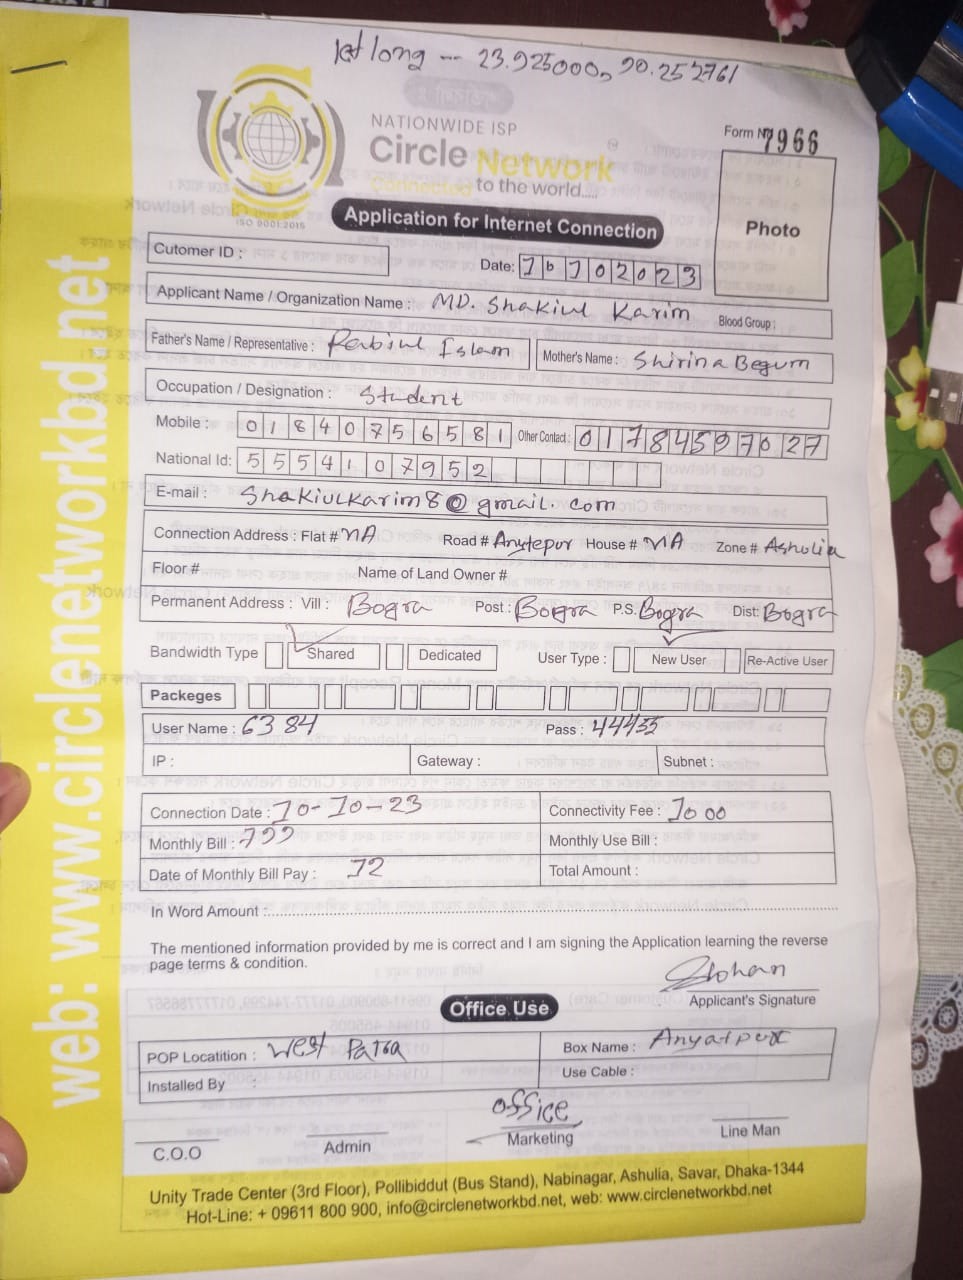 lat long -- 23.925000, 90.252761
NATIONWIDE ISP
Circle Network
Connected to the world.....
ISO 9001:2015
Form No 7966
Photo
Application for Internet Connection
Cutomer ID :
Date: 10102023
Applicant Name / Organization Name : MD. Shakiul Karim Blood Group :
Father's Name / Representative : Rabiul Islam Mother's Name : Shirina Begum
Occupation / Designation : Student
Mobile : 01840756581 Other Contact : 01784597027
National Id: 5554107952
E-mail : Shakiulkarim8@gmail.com
Connection Address : Flat # NA Road # Anytepur House # NA Zone # Ashulia
Floor # Name of Land Owner #
Permanent Address : Vill : Bogra Post : Bogra P.S. Bogra Dist: Bogra
Bandwidth Type Shared Dedicated User Type : New User Re-Active User
Packeges
User Name : 6384 Pass :
IP : Gateway : Subnet :
Connection Date : 10-10-23 Connectivity Fee : 1000
Monthly Bill : 799 Monthly Use Bill :
Date of Monthly Bill Pay : 12 Total Amount :
In Word Amount :
The mentioned information provided by me is correct and I am signing the Application learning the reverse
page terms & condition.
Applicant's Signature
Office Use
POP Locatition : West Box Name : Anyatpur
Installed By Use Cable :
office
C.O.O Admin Marketing Line Man
Unity Trade Center (3rd Floor), Pollibiddut (Bus Stand), Nabinagar, Ashulia, Savar, Dhaka-1344
Hot-Line: + 09611 800 900, info@circlenetworkbd.net, web: www.circlenetworkbd.net
web: www.circlenetworkbd.net